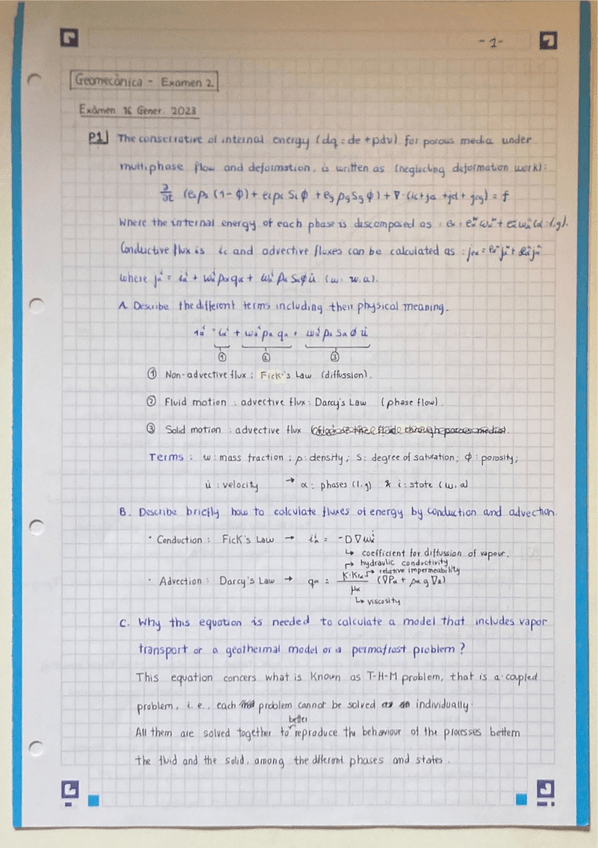 -1-
Geomecànica - Examen 2
Exàmen 16 Gener 2023
P1 The conservative of internal energy (dq = de + pdv) for porous media under
multiphase flow and deformation, is written as (neglecting deformation work):
∂/∂t (esρs (1-ϕ) + elρl Slϕ + egρgSgϕ) + ∇·(ic + jes + jel + jeg) = f
Where the internal energy of each phase is descomposed as :
Conductive flux is ic and advective fluxes can be calculated as :
where
A. Describe the different terms including their physical meaning.
① ② ③
① Non-advective flux : Fick's Law (diffussion).
② Fluid motion : advective flux : Darcy's Law (phase flow)
③ Solid motion : advective flux
Terms : w: mass fraction ; ρ: density ; S: degree of saturation ; ϕ: porosity ;
u̇ : velocity → α: phases (l,g) & i: state (w, a)
B. Describe briefly how to calculate fluxes of energy by conduction and advection.
· Conduction : Fick's Law → = -D∇
↳ coefficient for diffussion of vapour.
hydraulic conductivity
relative impermeability
· Advection : Darcy's Law → qα = (∇Pα + ραg∇z)
↳ viscosity
C. Why this equation is needed to calculate a model that includes vapor
transport or a geothermal model or a permafrost problem ?
This equation concers what is known as T-H-M problem, that is a coupled
problem, i.e., each problem cannot be solved individually.
better
All them are solved together to reproduce the behaviour of the processes bettern
the fluid and the solid, among the different phases and states.